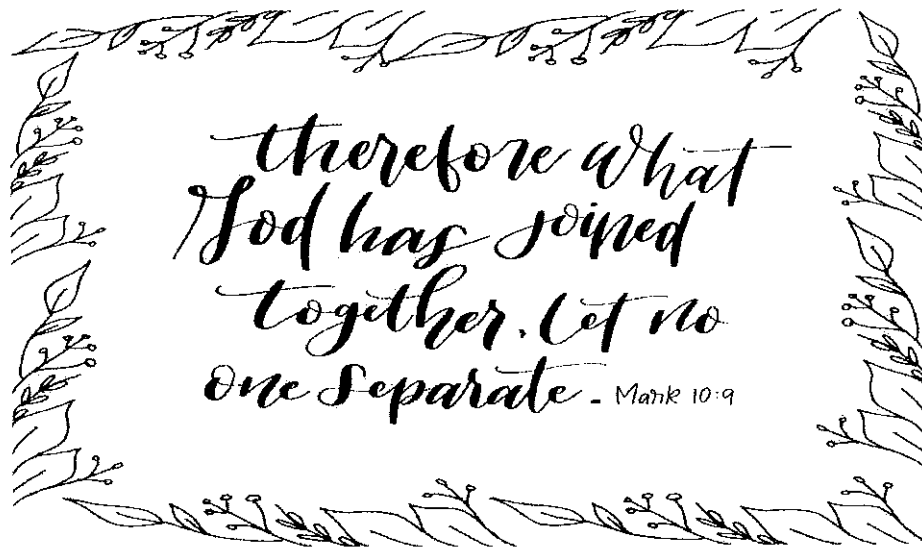 therefore what
God has joined
together, let no
one separate. Mark 10:9